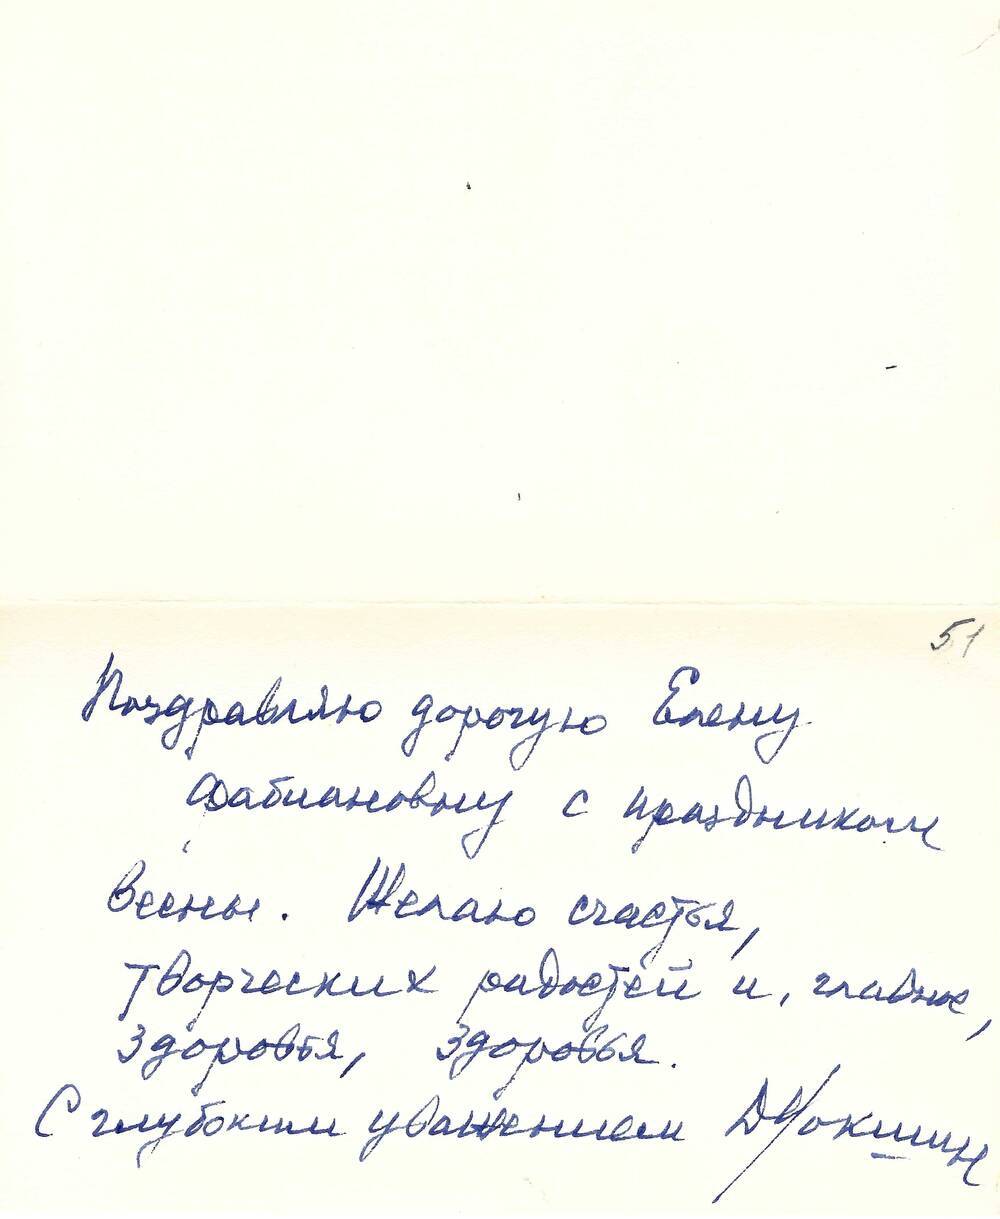 51
Поздравляю дорогую Елену
Фабиановну с праздником
весны. Желаю счастья,
творческих радостей и, главное,
здоровья, здоровья.
С глубоким уважением